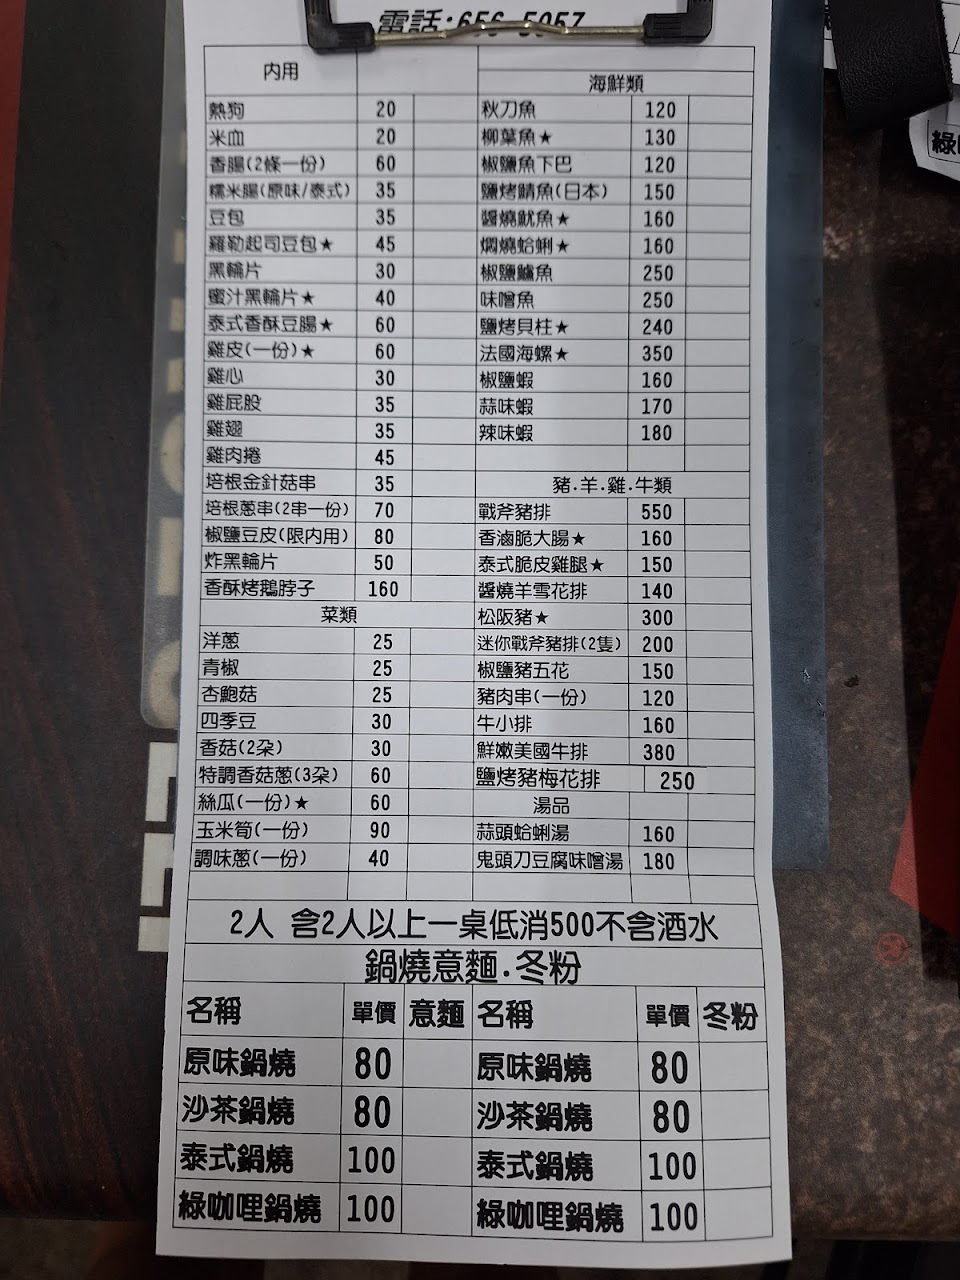 電話:656-5957
內用
熱狗 20
米血 20
香腸(2條一份) 60
糯米腸(原味/泰式) 35
豆包 35
羅勒起司豆包★ 45
黑輪片 30
蜜汁黑輪片★ 40
泰式香酥豆腸★ 60
雞皮(一份)★ 60
雞心 30
雞屁股 35
雞翅 35
雞肉捲 45
培根金針菇串 35
培根蔥串(2串一份) 70
椒鹽豆皮(限內用) 80
炸黑輪片 50
香酥烤鵝脖子 160
菜類
洋蔥 25
青椒 25
杏鮑菇 25
四季豆 30
香菇(2朵) 30
特調香菇蔥(3朵) 60
絲瓜(一份)★ 60
玉米筍(一份) 90
調味蔥(一份) 40
海鮮類
秋刀魚 120
柳葉魚★ 130
椒鹽魚下巴 120
鹽烤鯖魚(日本) 150
醬燒魷魚★ 160
燜燒蛤蜊★ 160
椒鹽鱸魚 250
味噌魚 250
鹽烤貝柱★ 240
法國海螺★ 350
椒鹽蝦 160
蒜味蝦 170
辣味蝦 180
豬.羊.雞.牛類
戰斧豬排 550
香滷脆大腸★ 160
泰式脆皮雞腿★ 150
醬燒羊雪花排 140
松阪豬★ 300
迷你戰斧豬排(2隻) 200
椒鹽豬五花 150
豬肉串(一份) 120
牛小排 160
鮮嫩美國牛排 380
鹽烤豬梅花排 250
湯品
蒜頭蛤蜊湯 160
鬼頭刀豆腐味噌湯 180
2人 含2人以上一桌低消500不含酒水
鍋燒意麵.冬粉
名稱 單價 意麵 名稱 單價 冬粉
原味鍋燒 80 原味鍋燒 80
沙茶鍋燒 80 沙茶鍋燒 80
泰式鍋燒 100 泰式鍋燒 100
綠咖哩鍋燒 100 綠咖哩鍋燒 100